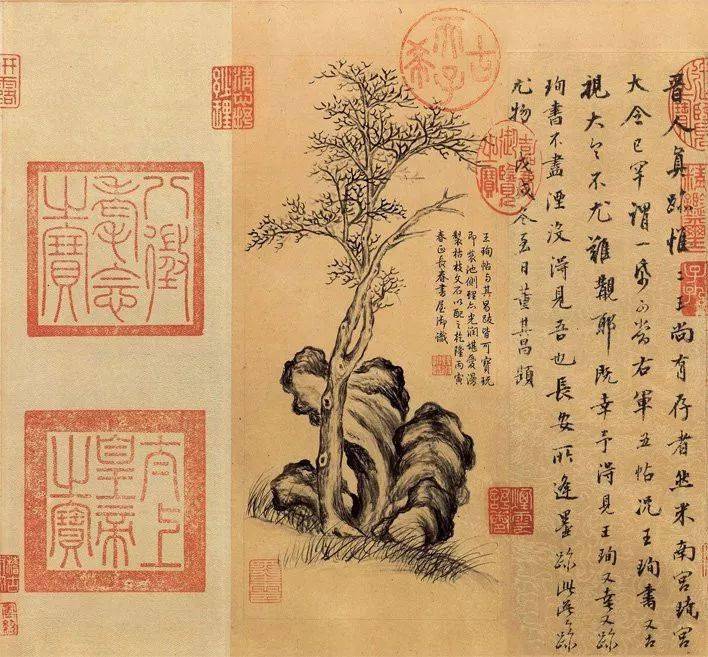 晉人真跡惟二王尚有存者然米南宮時
大令已罕謂一紙可當右軍五帖況王珣書
視大令不尤難覯耶既幸予得見王珣又幸
珣書不盡湮沒得見吾也長安所逢墨跡此為
尤物戊戌冬至日董其昌題
王珣帖與其昌跋皆可寶玩
即裝池側理亦光潤堪愛漫
製枯枝文石以配之乾隆丙寅
春正長春書屋御識
古希天子
嘉慶御覽之寶
八徵耄念之寶
太上皇帝之寶